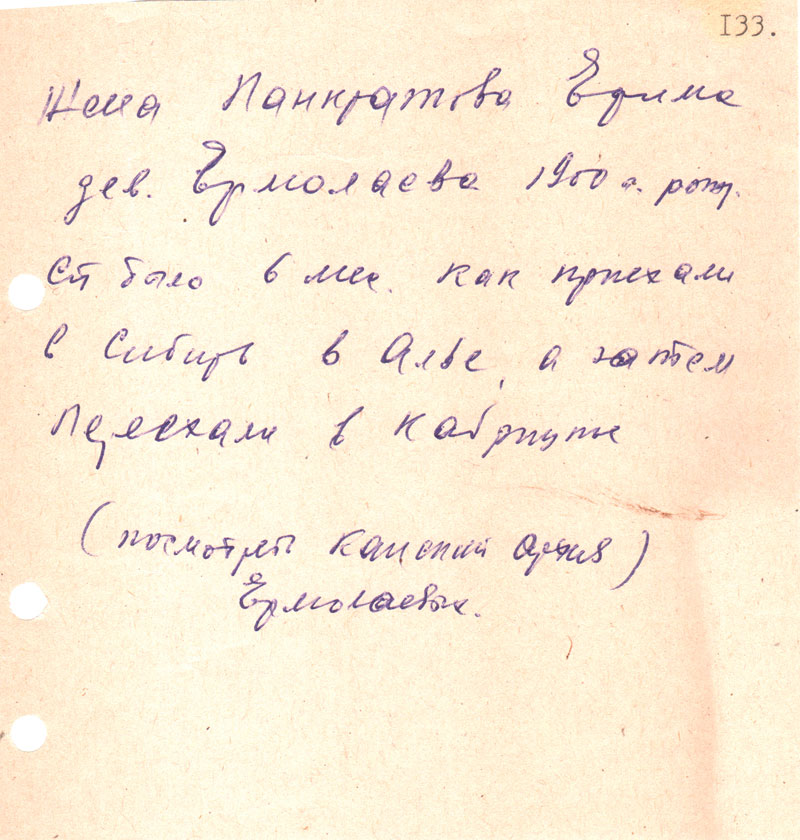 133.
Жена Панкратова Ефима
дев. Ермолаева 1900 г. рожд.
Ей было 6 мес. как приехали
в Сибирь в Алье, а затем
Переехали в
(посмотреть Канский архив)
Ермолаевых.